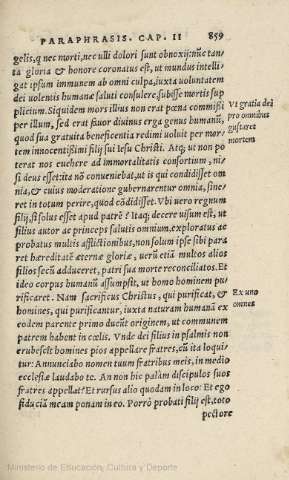 PARAPHRASIS. CAP. II 859
gelis, q nec morti, nec ulli dolori sunt obnoxij: nūc tan-
ta gloria & honore coronatus est, ut mundus intelli-
gat ipsum immunem ab omni culpa, iuxta voluntatem
dei volentis humanæ saluti consulere, subisse mortis sup
plicium. Siquidem mors illius non erat pœna commissi
per illum, sed erat fauor diuinus erga genus humanū,
quod sua gratuita beneficentia redimi voluit per mor
tem innocentißimi filij sui Iesu Christi. Atq; ut non po
terat nos euehere ad immortalitatis consortium, ni-
si deus esset: ita nō conueniebat, ut is qui condidisset om
nia, & cuius moderatione gubernarentur omnia, sine-
ret in totum perire, quod cōdidisset. Vbi uero regnum
filij, si solus esset apud patrē? Itaq; decere uisum est, ut
filius autor ac princeps salutis omnium, exploratus ac
probatus multis afflictionibus, non solum ipse sibi para
ret hæreditatē æternæ gloriæ, uerū etiā multos alios
filios secū adduceret, patri sua morte reconciliatos. Et
ideo corpus humanū assumpsit, ut homo hominem pu
rificaret. Nam sacrificus Christus, qui purificat, &
homines, qui purificantur, iuxta naturam humanā ex
eodem parente primo ducūt originem, ut communem
patrem habent in cœlis. Vnde dei filius in psalmis non
erubescit homines pios appellare fratres, cū ita loqui-
tur: Annunciabo nomen tuum fratribus meis, in medio
ecclesiæ laudabo te. An non hic palàm discipulos suos
fratres appellat? Et rursus alio quodam in loco: Et ego
fiduciā meam ponam in eo. Porrò probati filij est, toto
pectore
Vt gratia dei
pro omnibus
gustaret
mortem
Ex uno
omnes
Ministerio de Educación, Cultura y Deporte